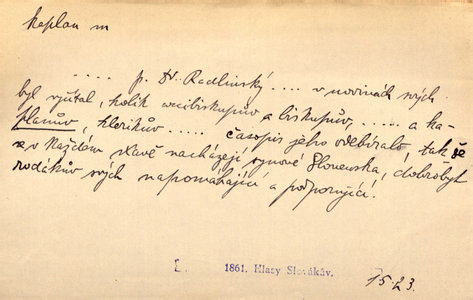 kaplan m
..... p. Dr. Radlinský .... v novinách svých
byl vyčítal, kolik arcibiskupův a biskupův, ..... a ka-
planův, klerikův ..... časopis jeho odebíralo, tak že
se v každém stavě nacházejí synové Slovenska, dobrobyt
rodákův svých napomáhající a podporující.
1861. Hlasy Slovákův.
15 23.